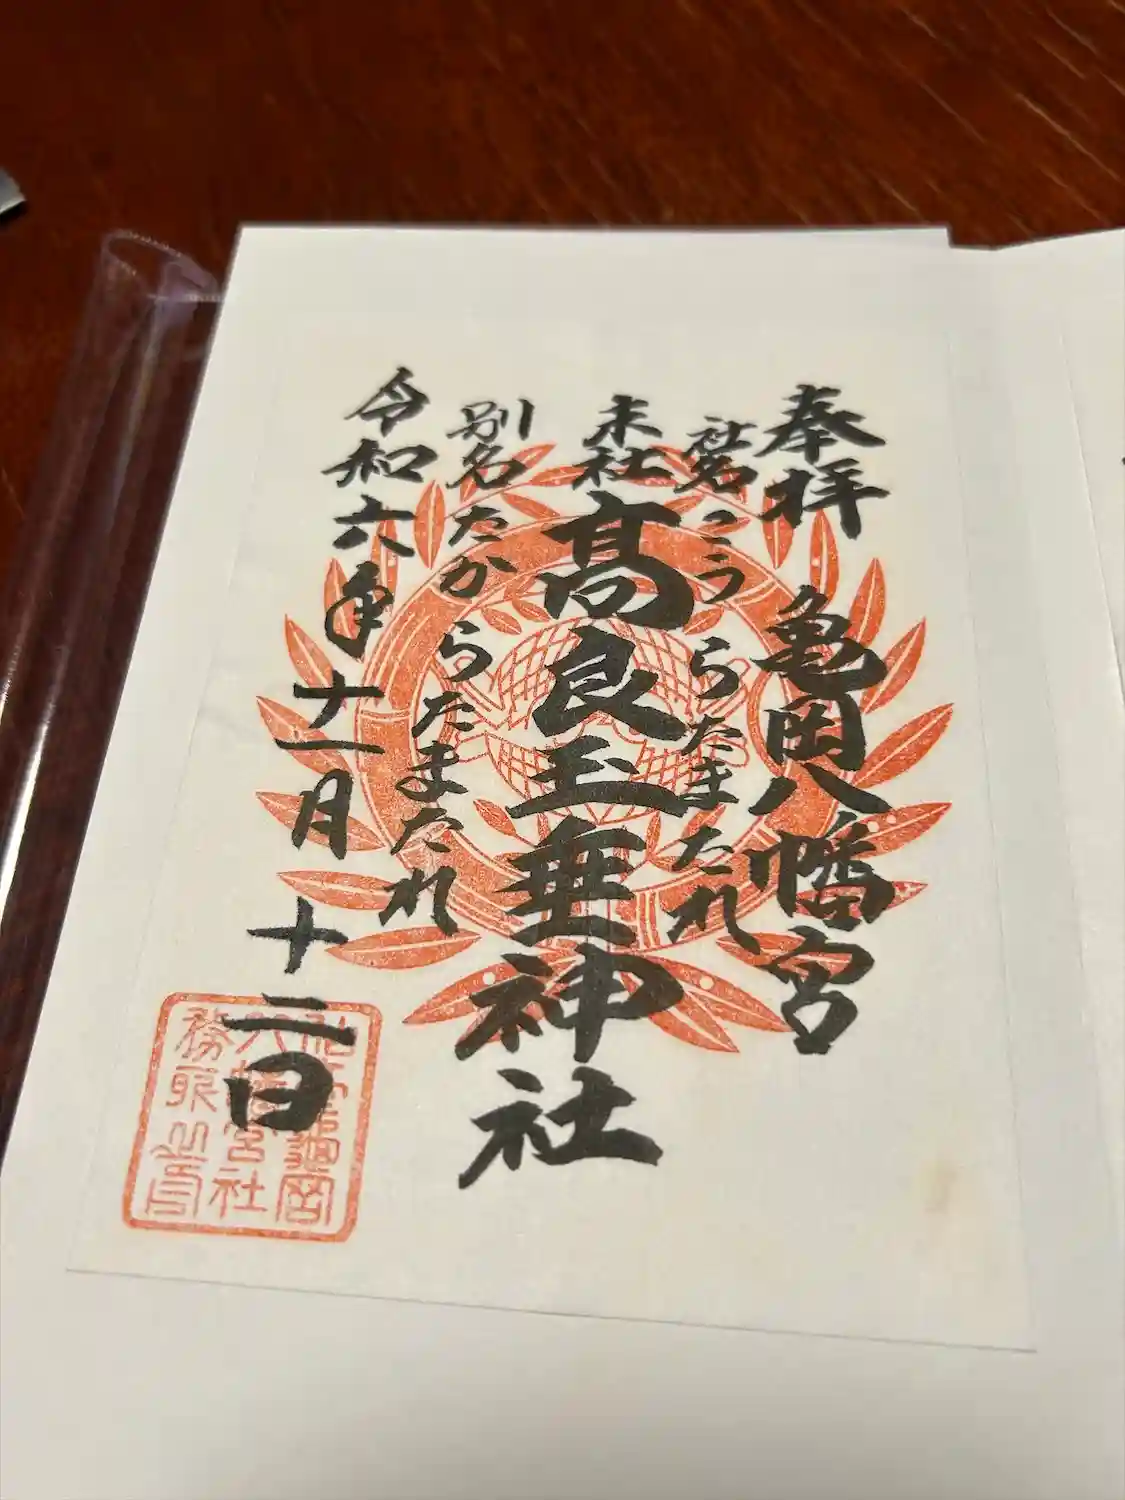 奉拝 亀岡八幡宮
社名こうらたまたれ
末社 高良玉垂神社
別名たからたまたれ
令和六年十一月十二日